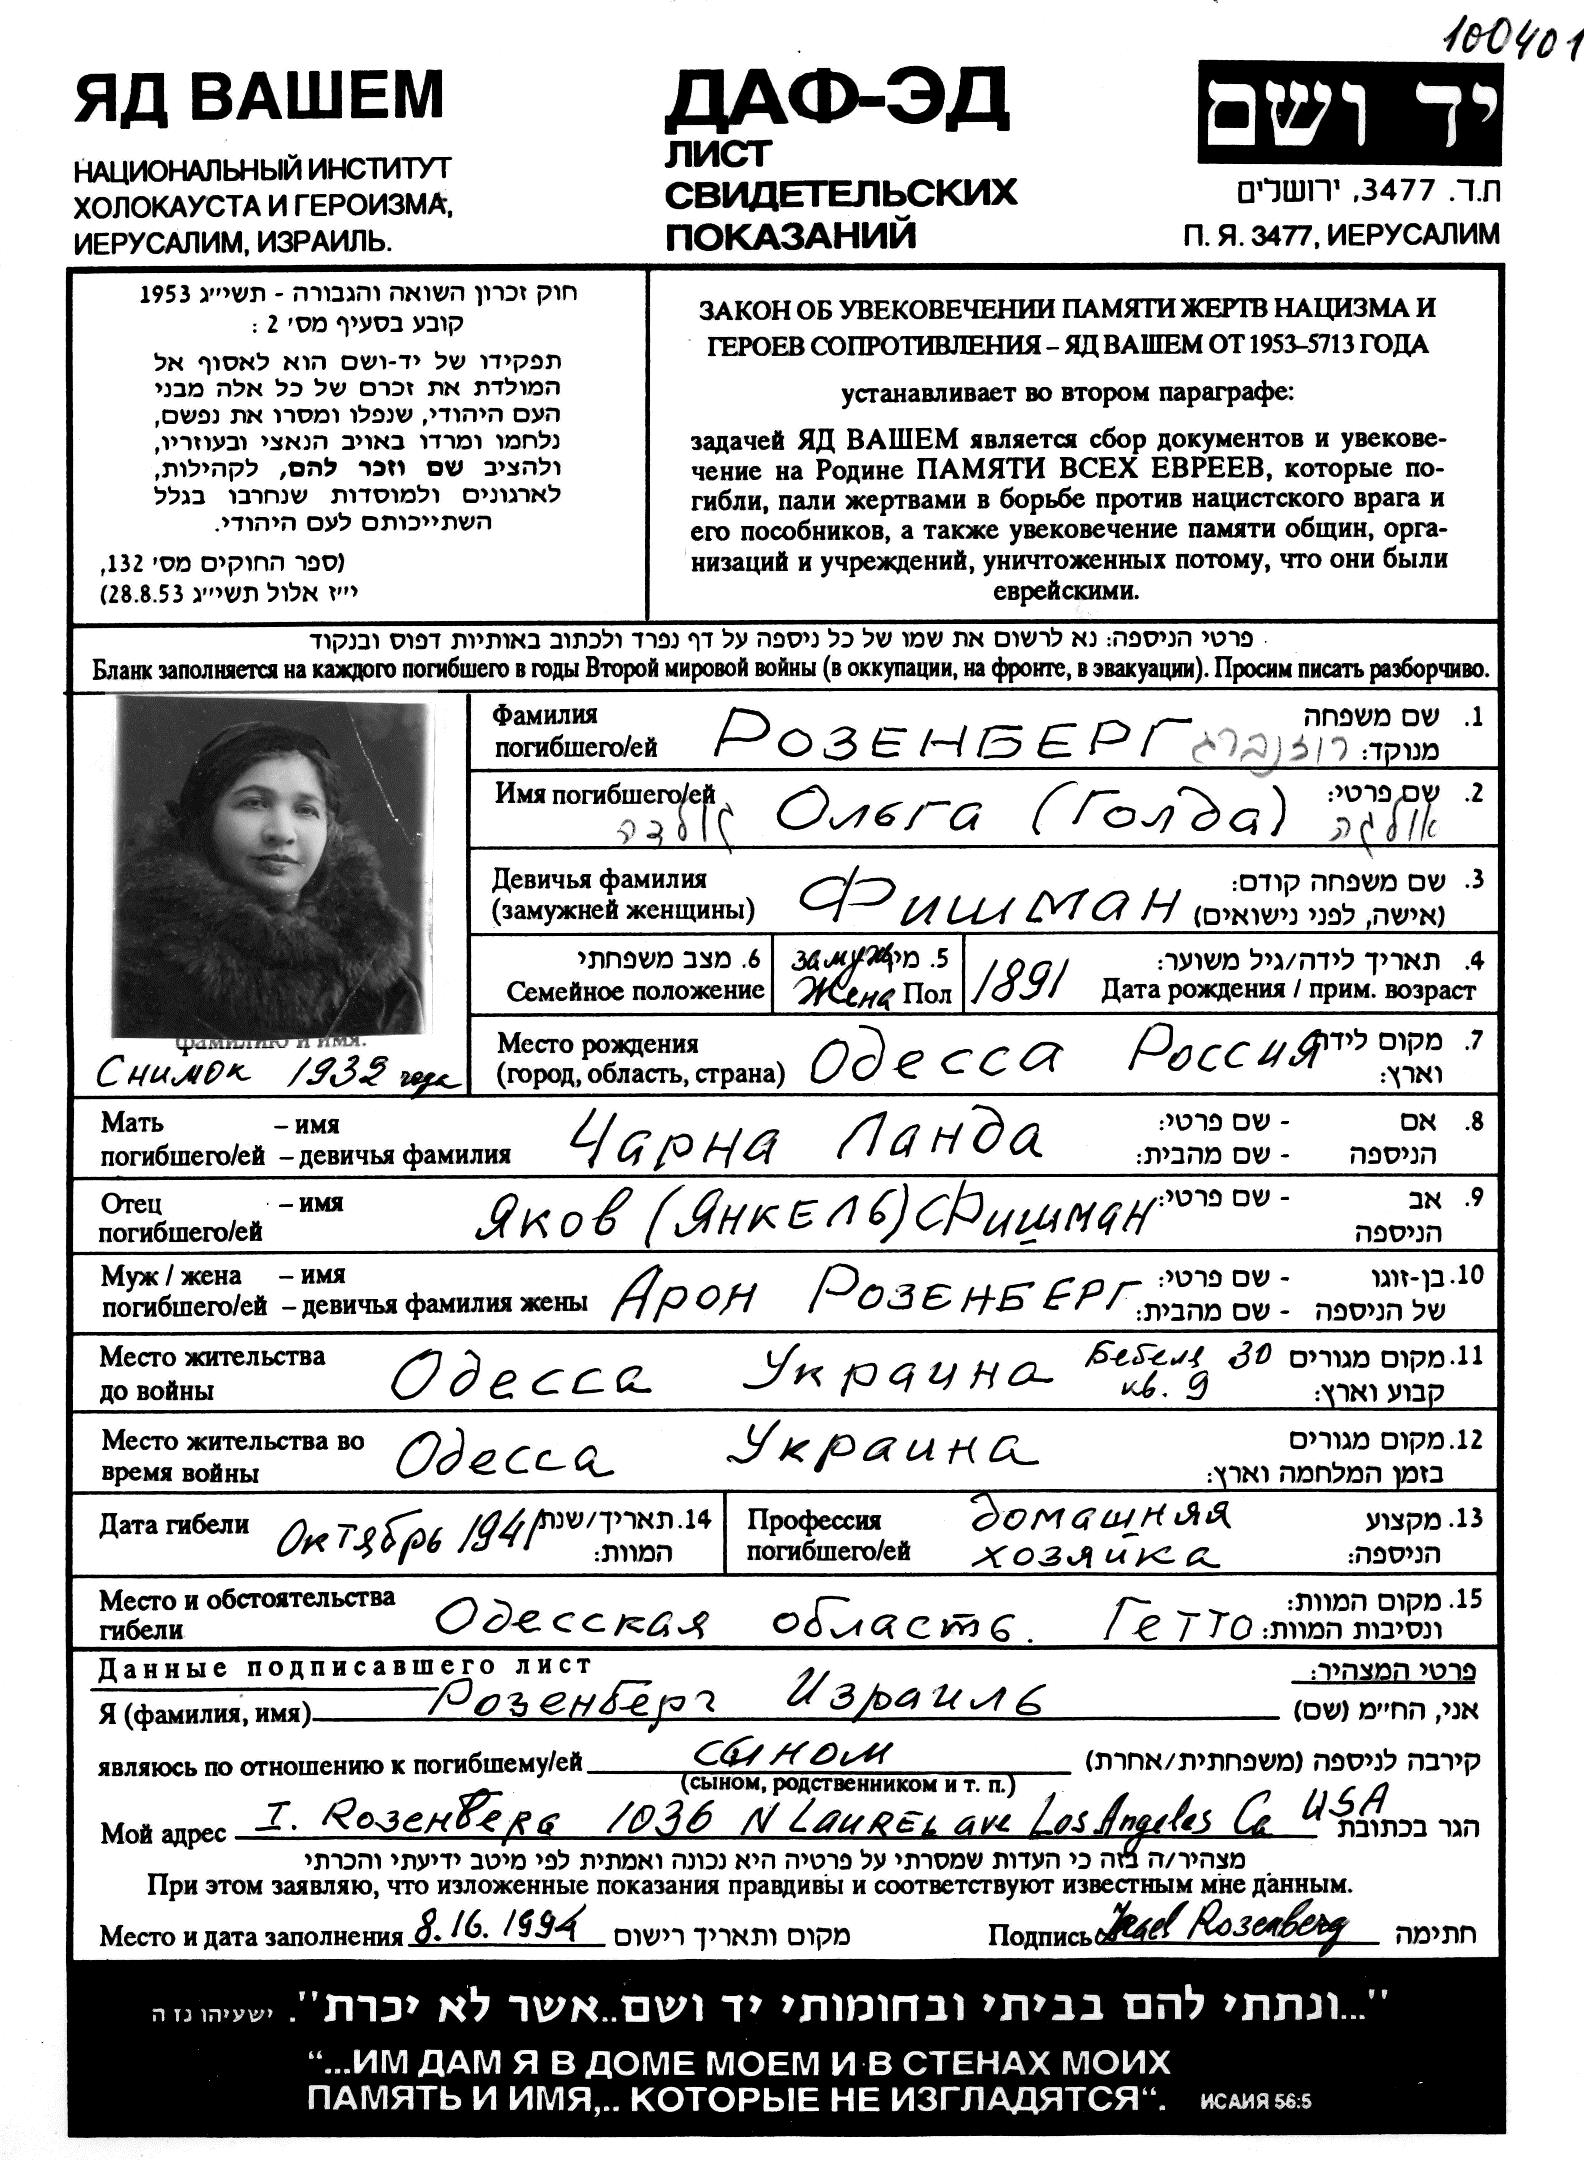 100401
ЯД ВАШЕМ
НАЦИОНАЛЬНЫЙ ИНСТИТУТ
ХОЛОКАУСТА И ГЕРОИЗМА,
ИЕРУСАЛИМ, ИЗРАИЛЬ.
ДАФ-ЭД
ЛИСТ
СВИДЕТЕЛЬСКИХ
ПОКАЗАНИЙ
יד ושם
ת.ד. 3477, ירושלים
П. Я. 3477, ИЕРУСАЛИМ
חוק זכרון השואה והגבורה - תשי״ג 1953
קובע בסעיף מס׳ 2 :
תפקידו של יד-ושם הוא לאסוף אל
המולדת את זכרם של כל אלה מבני
העם היהודי, שנפלו ומסרו את נפשם,
נלחמו ומרדו באויב הנאצי ובעוזריו,
ולהציב שם וזכר להם, לקהילות,
לארגונים ולמוסדות שנחרבו בגלל
השתייכותם לעם היהודי.
(ספר החוקים מס׳ 132,
י״ז אלול תשי״ג 28.8.53)
ЗАКОН ОБ УВЕКОВЕЧЕНИИ ПАМЯТИ ЖЕРТВ НАЦИЗМА И
ГЕРОЕВ СОПРОТИВЛЕНИЯ – ЯД ВАШЕМ ОТ 1953–5713 ГОДА
устанавливает во втором параграфе:
задачей ЯД ВАШЕМ является сбор документов и увекове-
чение на Родине ПАМЯТИ ВСЕХ ЕВРЕЕВ, которые по-
гибли, пали жертвами в борьбе против нацистского врага и
его пособников, а также увековечение памяти общин, орга-
низаций и учреждений, уничтоженных потому, что они были
еврейскими.
פרטי הניספה: נא לרשום את שמו של כל ניספה על דף נפרד ולכתוב באותיות דפוס ובנקוד
Бланк заполняется на каждого погибшего в годы Второй мировой войны (в оккупации, на фронте, в эвакуации). Просим писать разборчиво.
фамилию и имя.
Снимок 1932 года
Фамилия שם משפחה .1
погибшего/ей РОЗЕНБЕРГ רוזנברג מנוקד:
Имя погибшего/ей Ольга (Голда) שם פרטי: .2
גולדה אולגה
Девичья фамилия שם משפחה קודם: .3
(замужней женщины) Фишман (אישה, לפני נישואים)
6. מצב משפחתי замуж 5. מין תאריך לידה/גיל משוער: .4
Семейное положение Жена Пол 1891 Дата рождения / прим. возраст
Место рождения Одесса Россия מקום לידה .7
(город, область, страна) וארץ:
Мать – имя Чарна Ланда - שם פרטי: אם .8
погибшего/ей – девичья фамилия - שם מהבית: הניספה
Отец – имя Яков (Янкель) Фишман - שם פרטי: אב .9
погибшего/ей הניספה
Муж / жена – имя Арон Розенберг - שם פרטי: בן-זוגו .10
погибшего/ей – девичья фамилия жены - שם מהבית: של הניספה
Место жительства Одесса Украина Бебеля 30 מקום מגורים .11
до войны кв. 9 קבוע וארץ:
Место жительства во Одесса Украина מקום מגורים .12
время войны בזמן המלחמה וארץ:
Дата гибели Октябрь 1941 14. תאריך/שנת
המוות:
Профессия домашняя מקצוע .13
погибшего/ей хозяйка הניספה:
Место и обстоятельства מקום המוות: .15
гибели Одесская область. Гетто ונסיבות המוות:
Данные подписавшего лист פרטי המצהיר:
Я (фамилия, имя) Розенберг Израиль אני, הח״מ (שם)
являюсь по отношению к погибшему/ей сыном קירבה לניספה (משפחתית/אחרת)
(сыном, родственником и т. п.)
Мой адрес I. Rозенberg 1036 N Laurel ave Los Angeles Ca USA הגר בכתובת
מצהיר/ה בזה כי העדות שמסרתי על פרטיה היא נכונה ואמתית לפי מיטב ידיעתי והכרתי
При этом заявляю, что изложенные показания правдивы и соответствуют известным мне данным.
Место и дата заполнения 8.16.1994 מקום ותאריך רישום Подпись Rosenberg חתימה
״...ונתתי להם בביתי ובחומותי יד ושם..אשר לא יכרת״. ישעיהו נז ה
“...ИМ ДАМ Я В ДОМЕ МОЕМ И В СТЕНАХ МОИХ
ПАМЯТЬ И ИМЯ,.. КОТОРЫЕ НЕ ИЗГЛАДЯТСЯ“. ИСАИЯ 56:5